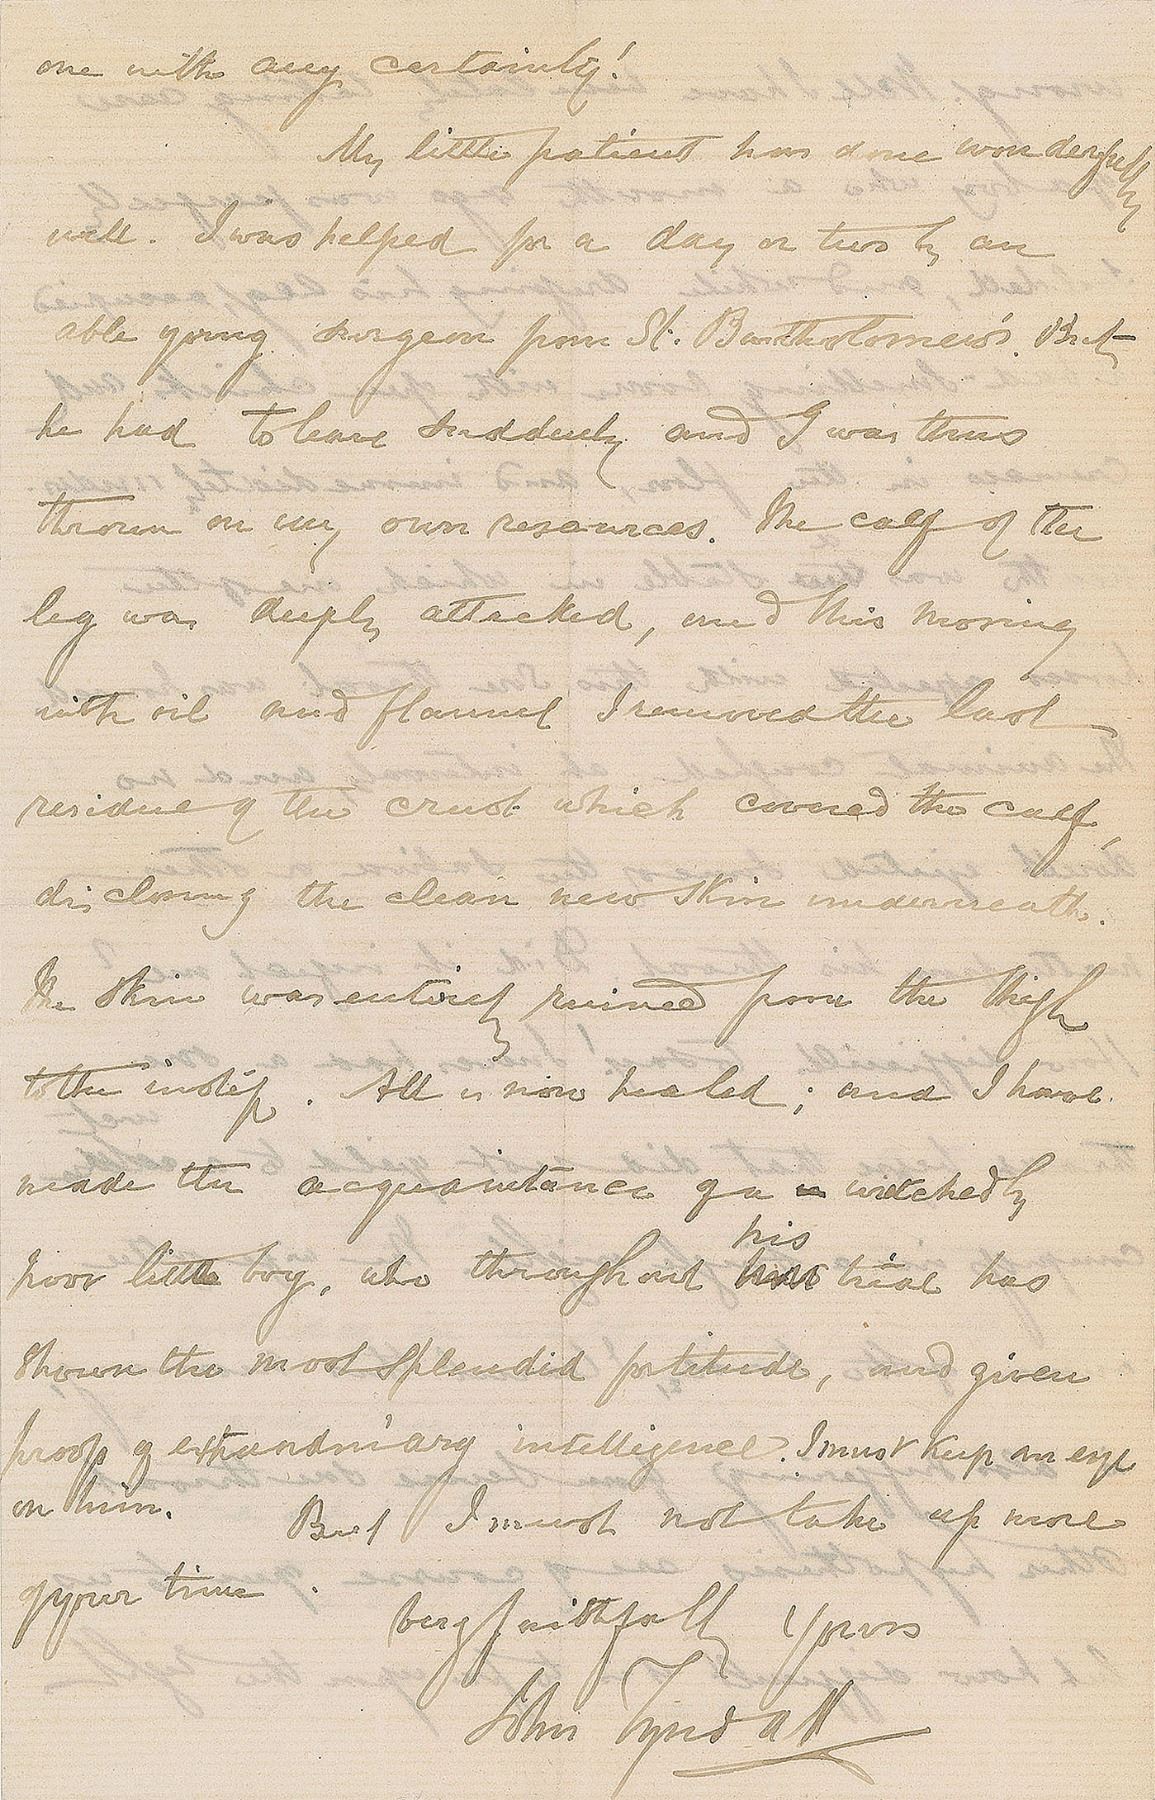 one with any certainty!
My little patient has done wonderfully
well. I was helped for a day or two by an
able young surgeon from St. Bartholomew's. But
he had to leave suddenly and I was thus
thrown on my own resources. The calf of the
leg was deeply attacked, and this morning
with oil and flannel I removed the last
residue of the crust which covered the calf,
disclosing the clean new skin underneath.
The skin was entirely ruined from the thigh
to the instep. All is now healed; and I have
made the acquaintance of a wretchedly
his
poor little boy, who throughout trial has
shown the most splendid fortitude, and given
proofs of extraordinary intelligence. I must keep an eye
on him.
But I must not take up more
of your time.
Very faithfully Yours
John Tyndall